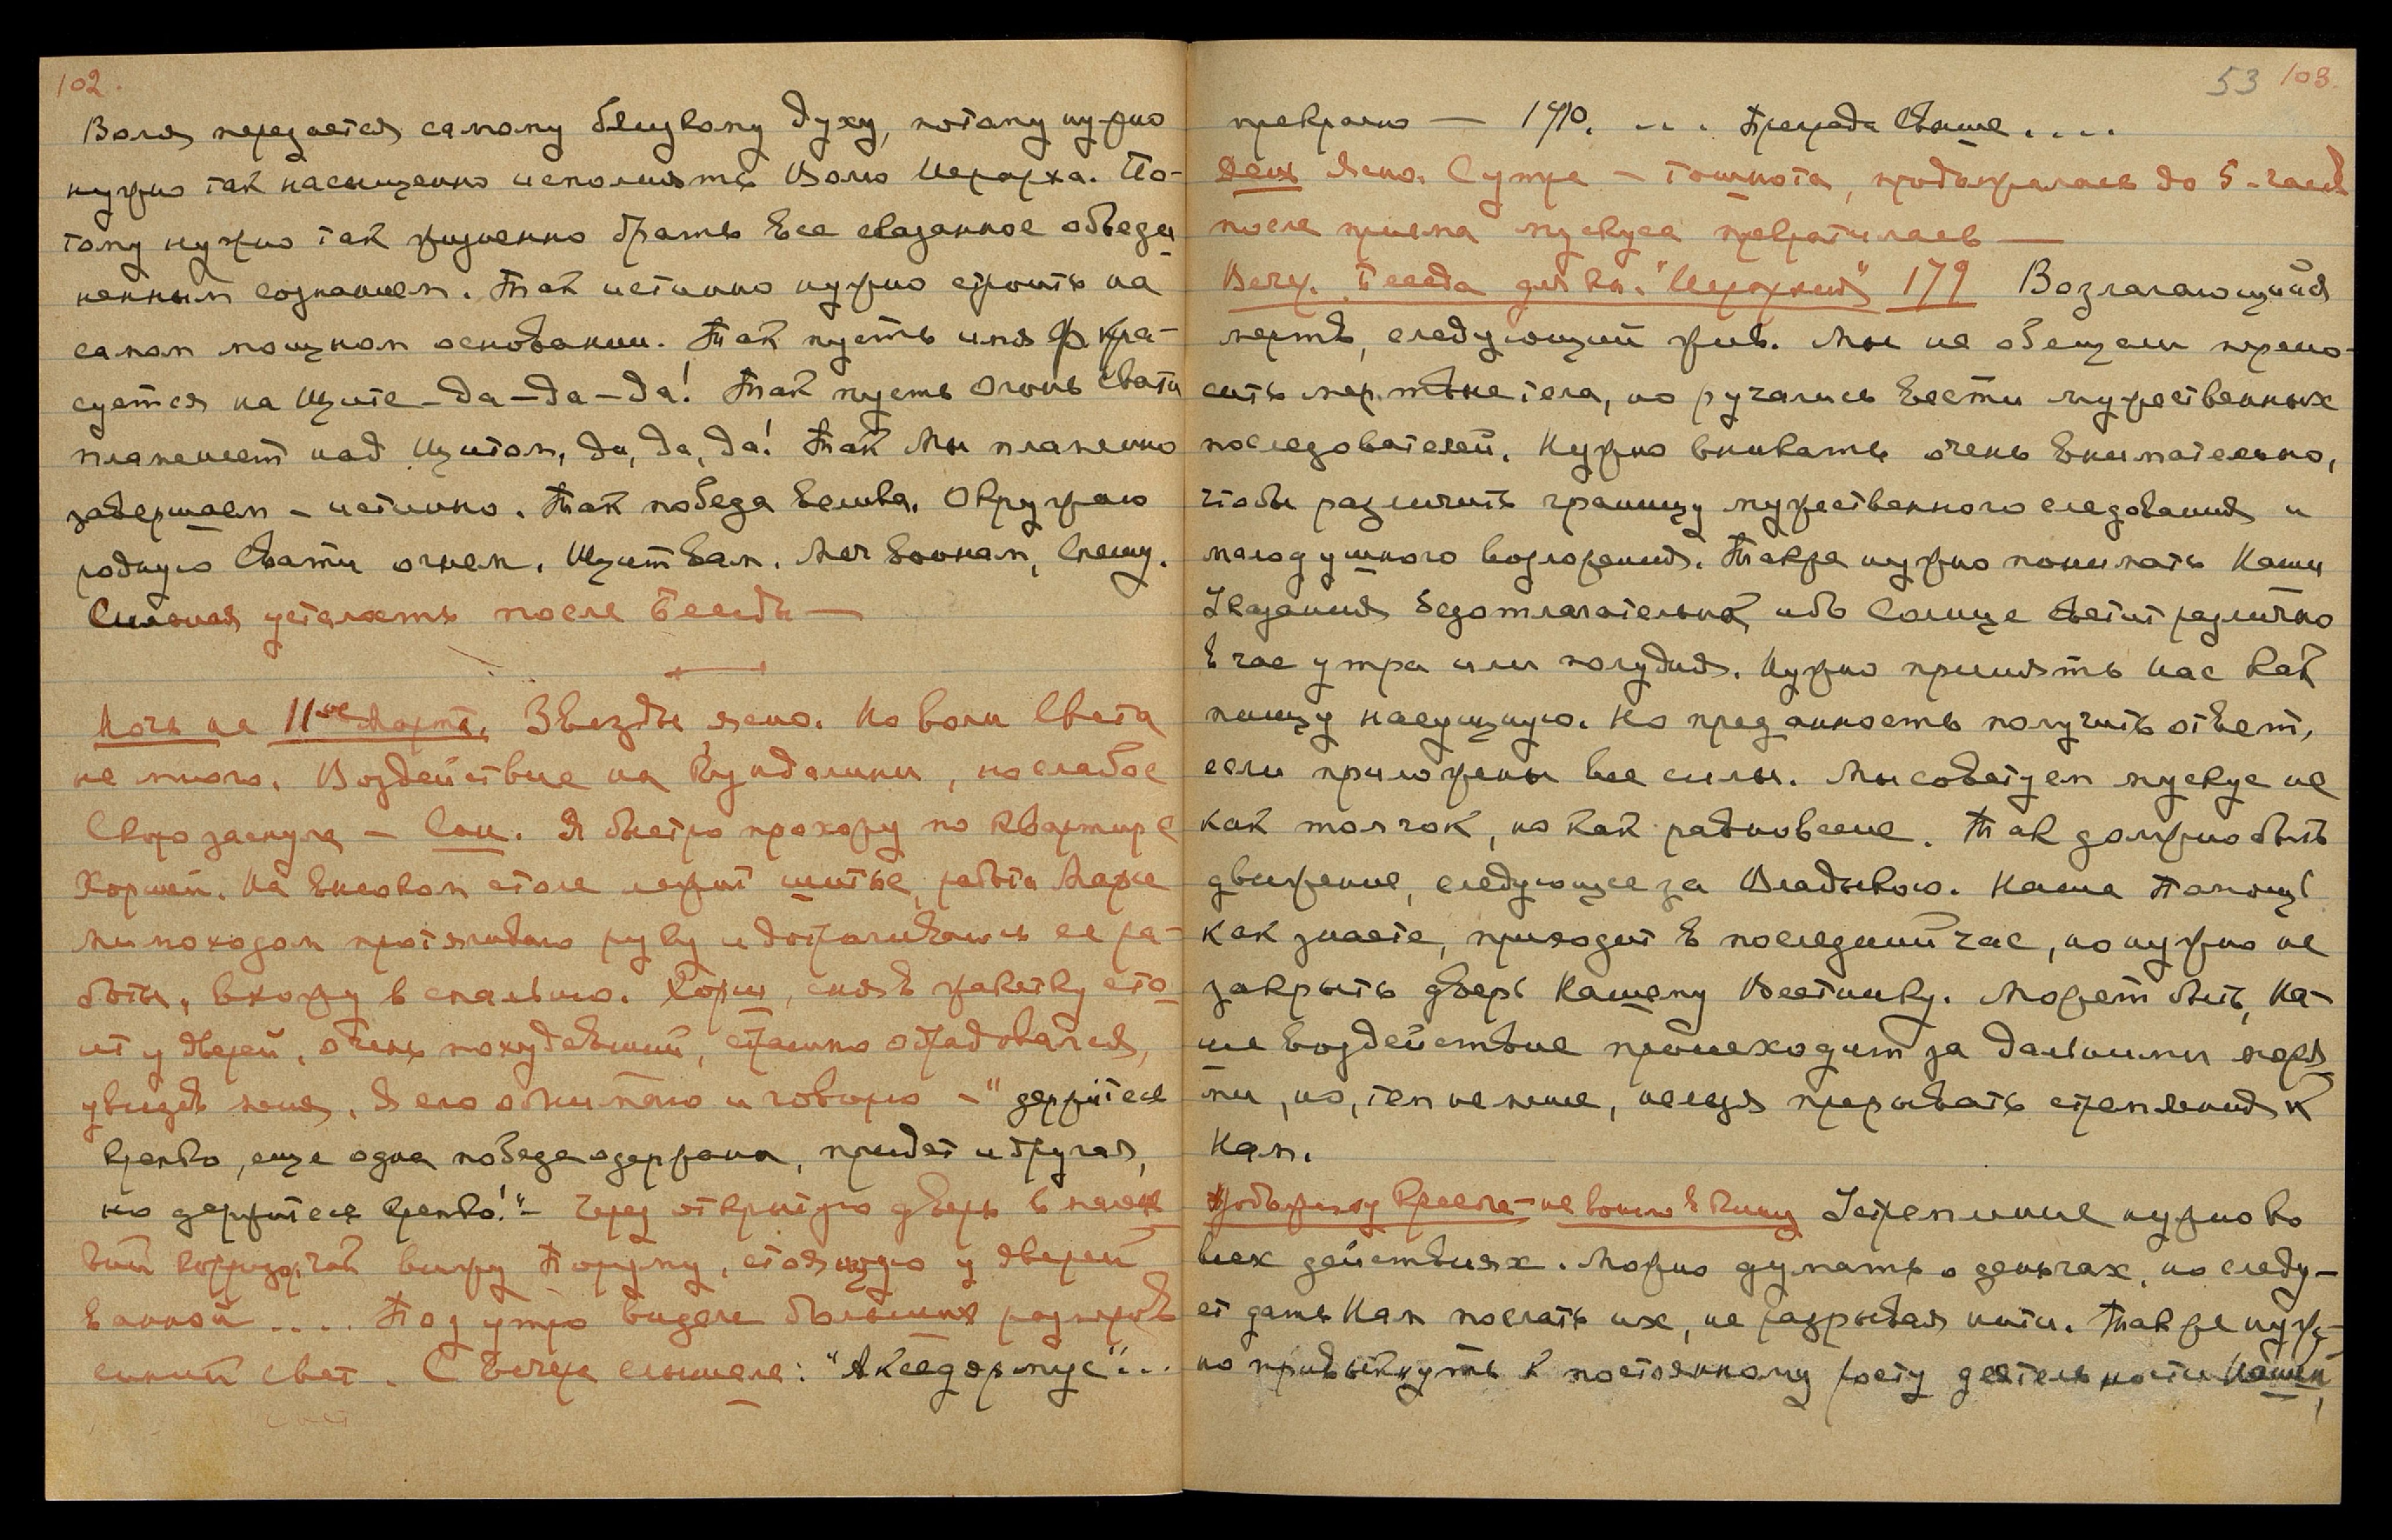 102.
Воля передается самому близкому духу, потому нужно
нужно так насыщенно исполнять Волю Иерарха. По-
тому нужно так жизненно брать все сказанное объеди
ненным сознанием. Так истинно нужно строить на
самом мощном основании. Так пусть имя Ф. кра-
суется на Щите – да – да – да! Так пусть огонь Свати
пламенеет над Щитом, да, да, да! Так Мы пламенно
завершаем – истинно. Так победа велика. Окружаю
родную Свати огнем. Щит Вам. Меч воинам, Спешу.
Сильная усталость после Беседы —
Ночь на 11ое Марта. Звезды ясно. Но волн Света
не много. Воздействие на Кундалини, но слабое
Скоро заснула – Сон. Я быстро прохожу по квартире
Хоршей. На высоком столе лежит шитье, работа
Мимоходом протягиваю руку и дотрагиваюсь ее ра-
боты, вхожу в спальню. Хорш, сняв жакетку сто-
ит у дверей, очень похудевший, страшно обрадовался,
увидев меня. Я его обнимаю и говорю – "держитесь
крепко, еще одна победа одержана, придет и другая,
но держитесь крепко!" – Через открытую дверь в
кий вижу Поруму, стоящую у дверей
ванной .... Под утро видела больших размеров
синий свет. С вечера слышала: "Акседжериус"...
53 103.
прекрасно — 1910. ... Преграда свыше....
День Ясно. С утра – тошнота, продолжалась до 5-часов
после приема мускуса прекратилась —
Веч. Беседа для кн. "Иерархия" 179 Возлагающийся
мертв, следующий жив. Мы не обещали перено-
сить мертвые тела, но ручались вести мужественных
последователей. Нужно вникать очень внимательно,
чтобы различить границу мужественного следования и
малодушного возложения. Также нужно понимать Наши
Указания безотлагательно, ибо Солнце светит различно
в час утра или полудня. Нужно принять нас как
пищу насущную. Но преданность получить ответ,
если приложены все силы. Мы советуем мускус не
как толчок, но как равновесие. Так должно быть
движение, следующее за Владыкою. Наша Помощь
как знаете, приходит в последний час, но нужно не
закрыть дверь Нашему Вестнику. Может быть, На-
ше воздействие происходит за дальними моря
ми, но, тем не менее, нельзя прерывать стремления к
Нам.
не вошло в Книгу Устремление нужно во
всех действиях. Можно думать о деньгах, но следу-
ет дать Нам послать их, не разрывая нити. Также нуж-
но привыкнуть к постоянному росту деятельности Нашей,